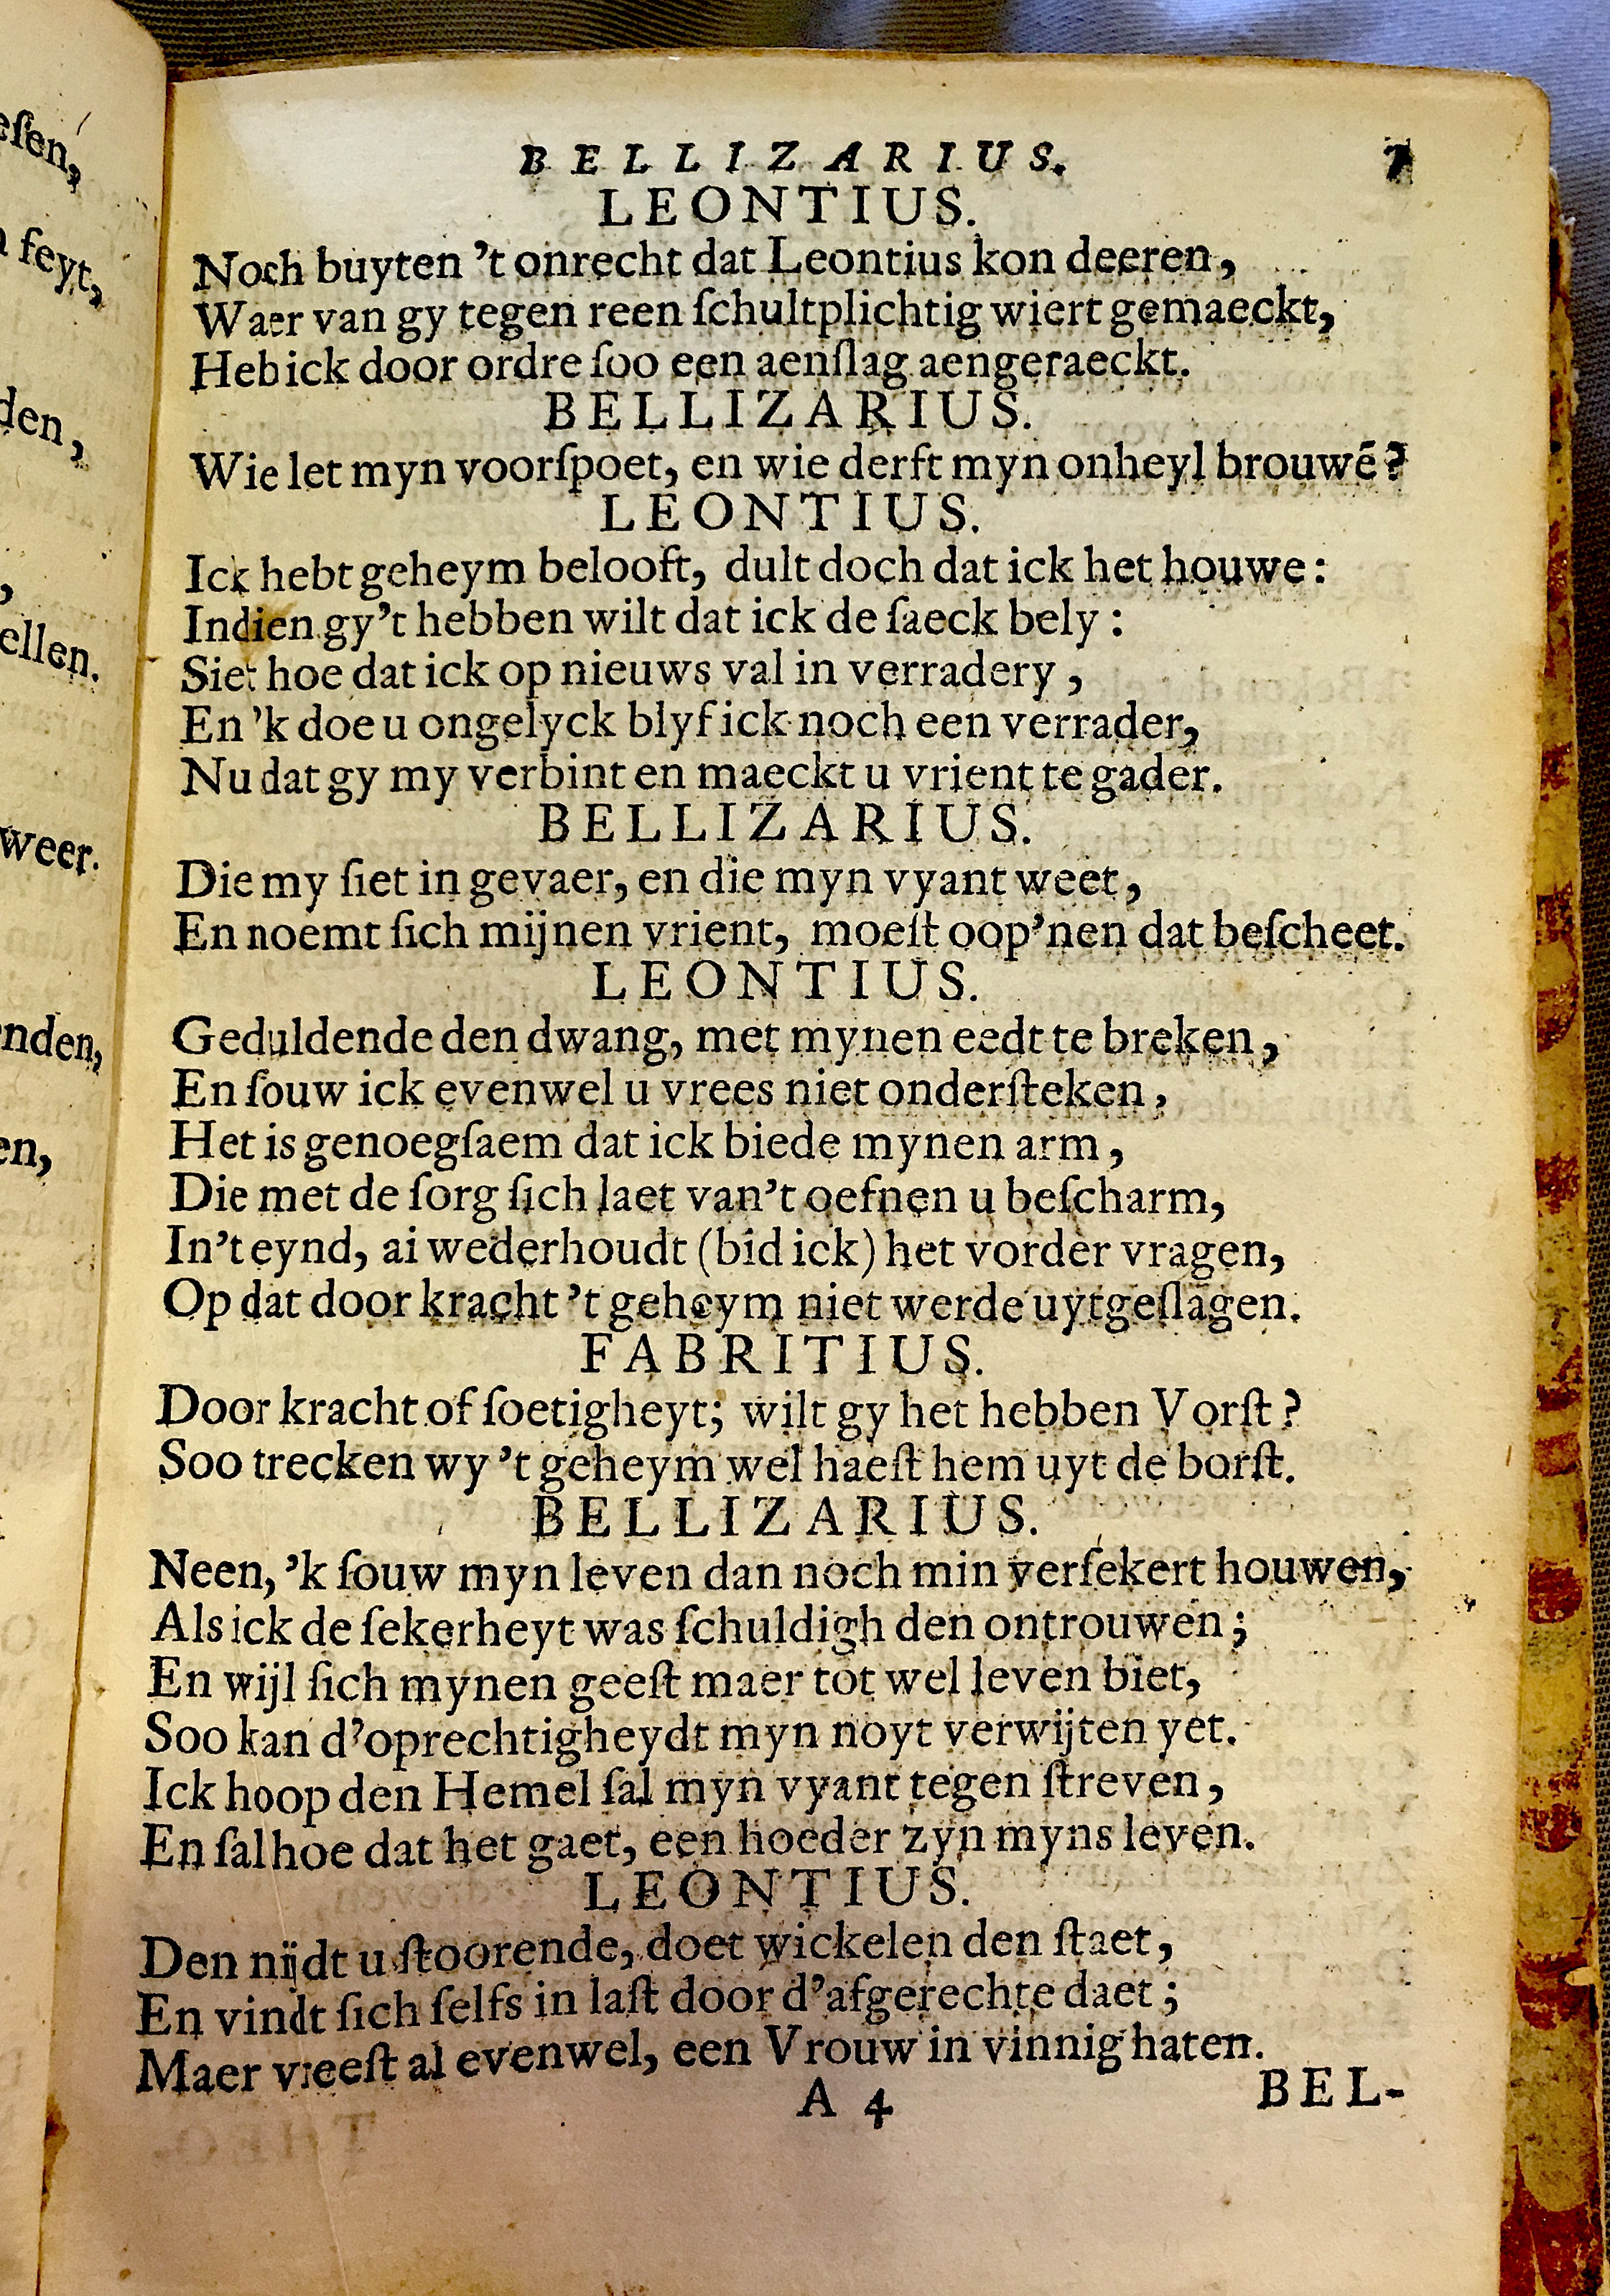 BELLIZARIUS. 7
LEONTIUS.
Noch buyten 't onrecht dat Leontius kon deeren,
Waer van gy tegen reen ſchultplichtig wiert gemaeckt,
Heb ick door ordre ſoo een aenſlag aengeraeckt.
BELLIZARIUS.
Wie let myn voorſpoet, en wie derft myn onheyl brouwē?
LEONTIUS.
Ick hebt geheym belooft, dult doch dat ick het houwe:
Indien gy't hebben wilt dat ick de ſaeck bely:
Siet hoe dat ick op nieuws val in verradery,
En 'k doe u ongelyck blyf ick noch een verrader,
Nu dat gy my verbint en maeckt u vrient te gader.
BELLIZARIUS.
Die my ſiet in gevaer, en die myn vyant weet,
En noemt ſich mijnen vrient, moeſt oop'nen dat beſcheet.
LEONTIUS.
Geduldende den dwang, met mynen eedt te breken,
En ſouw ick evenwel u vrees niet onderſteken,
Het is genoegſaem dat ick biede mynen arm,
Die met de ſorg ſich laet van't oefnen u beſcharm,
In't eynd, ai wederhoudt (bid ick) het vorder vragen,
Op dat door kracht 't geheym niet werde uytgeſlagen.
FABRITIUS.
Door kracht of ſoetigheyt; wilt gy het hebben Vorſt?
Soo trecken wy 't geheym wel haeſt hem uyt de borſt.
BELLIZARIUS.
Neen, 'k ſouw myn leven dan noch min verſekert houwen,
Als ick de ſekerheyt was ſchuldigh den ontrouwen;
En wijl ſich mynen geeſt maer tot wel leven biet,
Soo kan d'oprechtigheydt myn noyt verwijten yet.
Ick hoop den Hemel ſal myn vyant tegen ſtreven,
En ſal hoe dat het gaet, een hoeder zyn myns leven.
LEONTIUS.
Den nijdt u ſtoorende, doet wickelen den ſtaet,
En vindt ſich ſelfs in laſt door d'afgerechte daet;
Maer vreeſt al evenwel, een Vrouw in vinnig haten.
A 4 BEL-